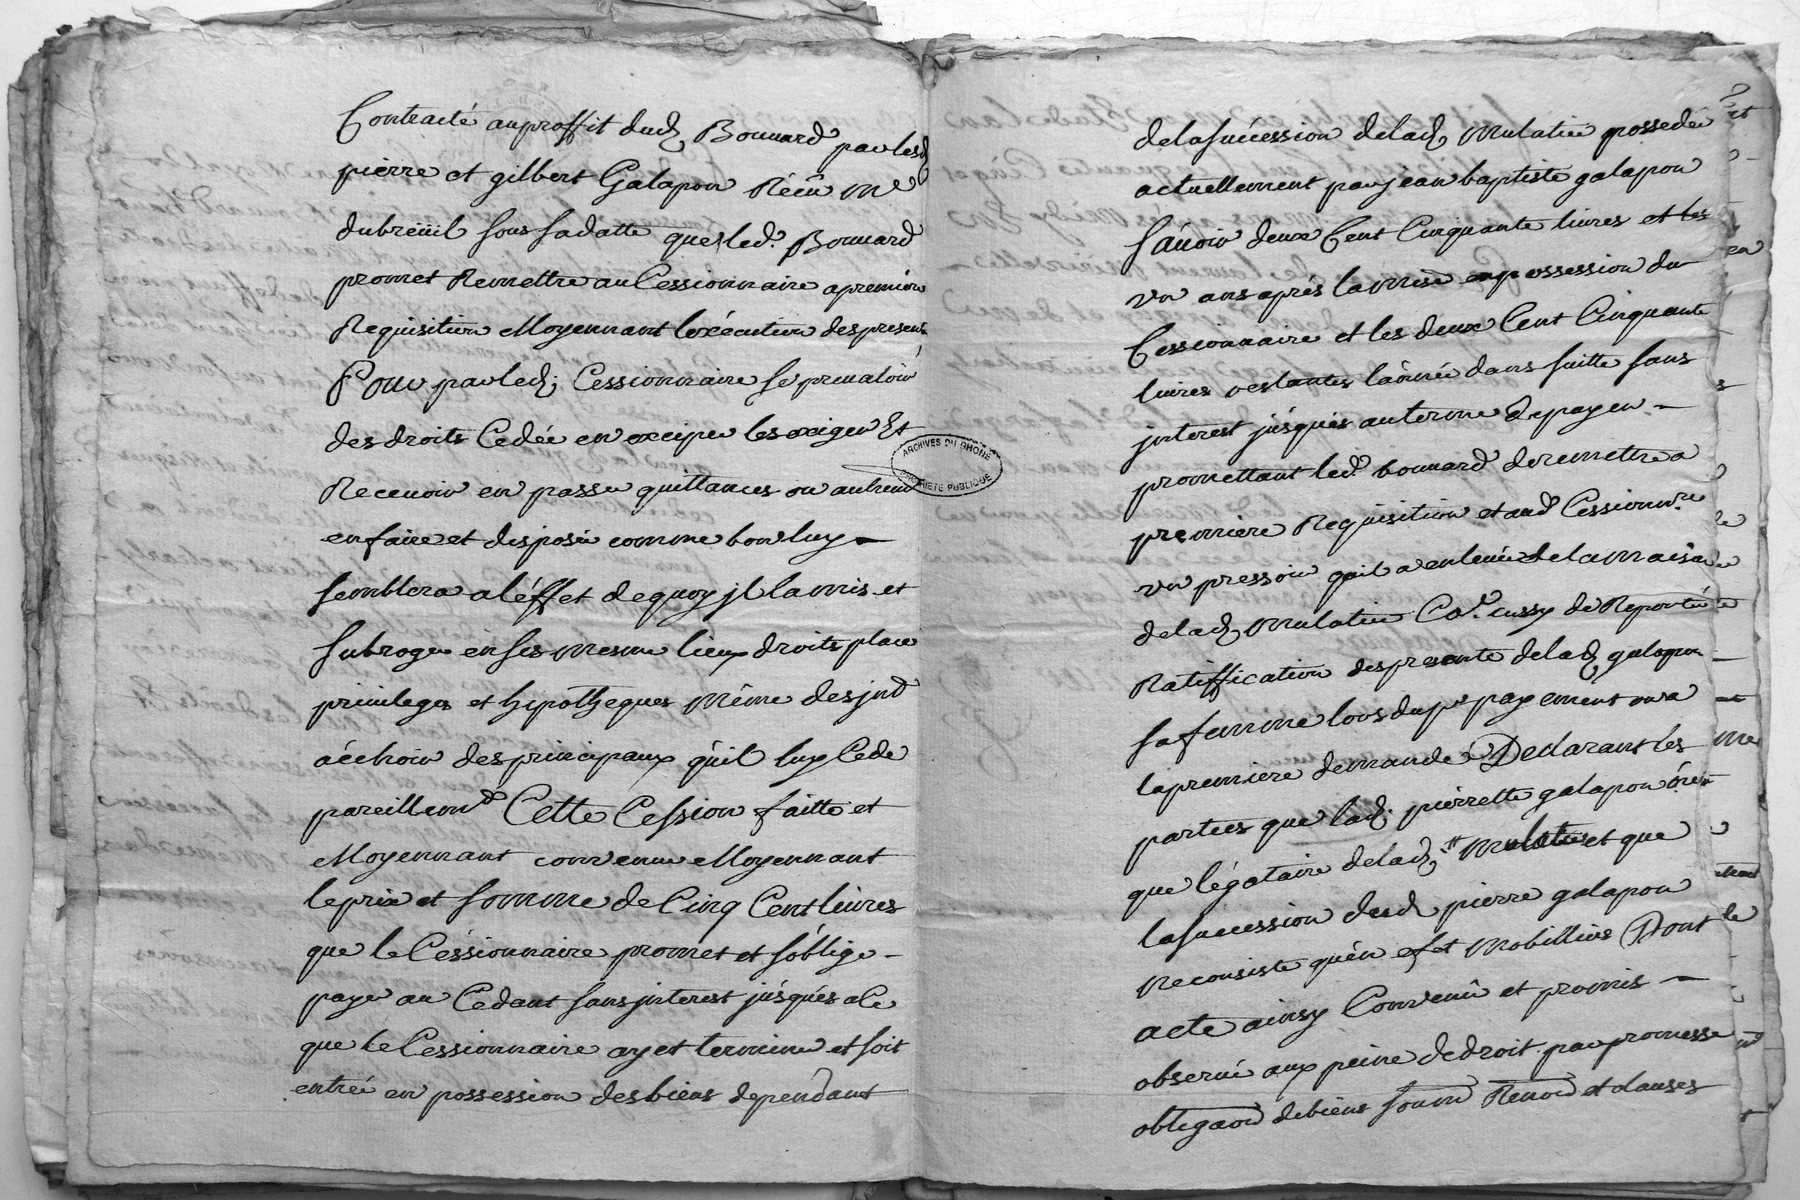 Contracté au proffit dud. Bouuard par lesd
pierre et gilbert Galapon Récû me
dubreüil sous sa datte que led. Bouuard
promet Remettre au Cessionnaire a premiere
Requisition Moyennant l'exécution des presents
Pour par led. Cessionnaire se preualoir
des droits Cedée en exciper les exiger Et
Receuoir en passer quittances ou autrem
en faire et disposée comme bon luy
semblera a léffet de quoy jl la mis et
subroge én ses mesme lieux droits place
priuileges et hipotheques Méme des jnt
a échoir des principaux quil luy Cede
pareillemt Cette Cession faitte et
Moyennant convenue Moyennant
le prix et somme de Cinq Cent liures
que le Céssionnaire promet et s'oblige
paye au Cedant sans jnterest júsqués a Ce
que le Cessionnaire ayet terminé et soit
entrée en possession des biens dependant
ARCHIVES DU RHONE
PROPRIETE PUBLIQUE
de la succession de lad. Mulatier possedée
actuellement par jean baptiste galapon
sáuoir deux Cent Cinquante liures et les
vn ans aprés la mise en possession du
Cessionnaire et les deux Cent Cinquante
liures restantes láonnée dans suitte sans
jnterest júsqués au terme de payer
promettant led. bouuard de remettre a
premiere Requisition et aud Cessionnre
vn pressoir quil a enleuée de la maison
de lad. Mulatier
Ratiffication des presente de lad. galapon
sa femme lors du pr payement ou a
la premiere demande Declarant les
parties que lad. pierrette galapon
que légataire de lad. Mulatier et que
la succession dud pierre galapon
ne consiste quén efet mobilliere Dont
acte ainsy Convenû et promis
obserué aux peine de droit par promesse
obligaon de biens soumn Renon et clauses